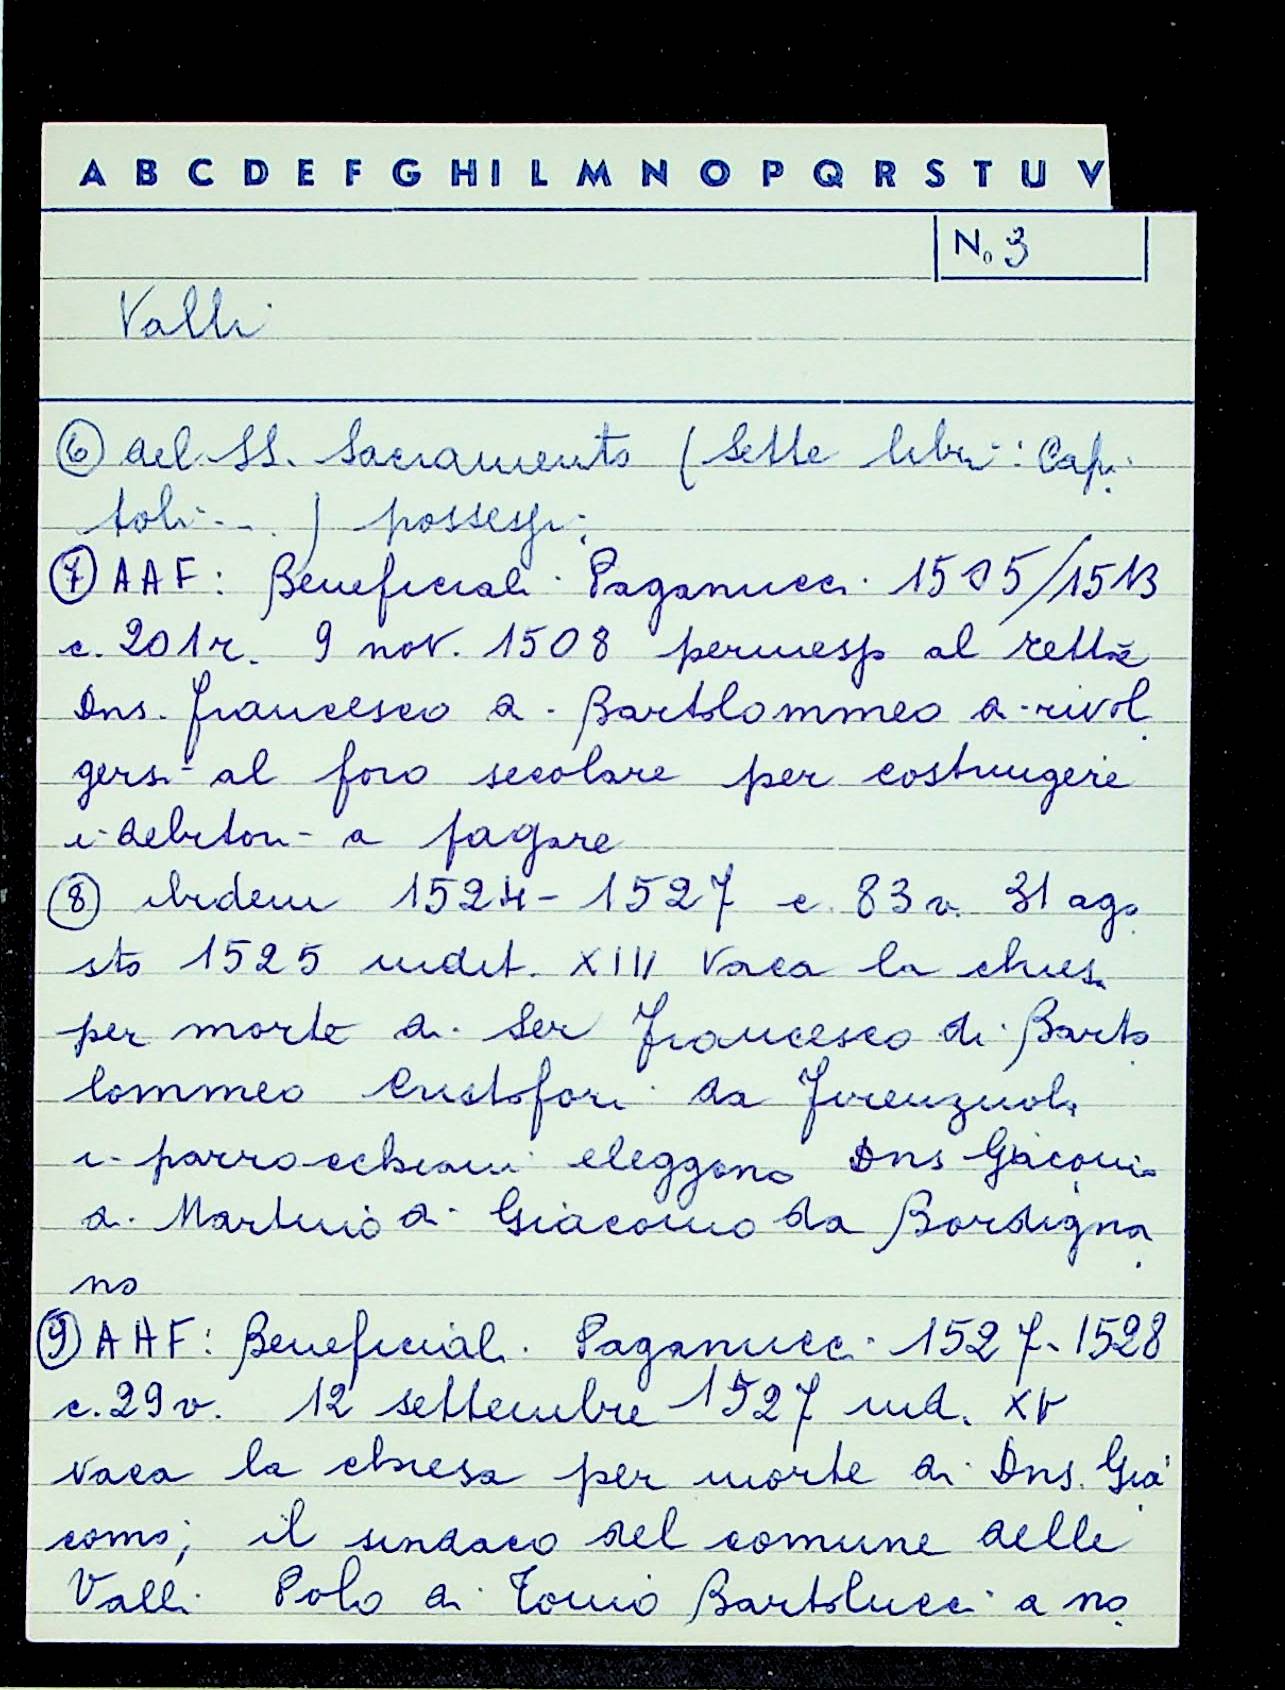 A B C D E F G H I L M N O P Q R S T U V
N. 3
Valli
6 del SS. Sacramento (Sette libri: Capi
toli...) possessi;
7 AAF: Beneficiali Paganucci 1505/1513
c. 201r. 9 nov. 1508 permesso al rettore
Dns. Francesco di Bartolommeo di rivol
gersi al foro secolare per costringere
i debitori a pagare
8 ibidem 1524-1527 c. 83v. 31 ago
sto 1525 indit. XIII Vaca la chiesa
per morte di Ser Francesco di Barto
lommeo Cristofori da Firenzuola
i parrocchiani eleggono Dns Giacomo
di Martino di Giacomo da Bordigna
no
9 AAF: Beneficiali Paganucci 1527-1528
c. 29v. 12 settembre 1527 ind. XV
vaca la chiesa per morte di Dns. Gia
como; il sindaco del comune delle
Valli Polo di Tonio Bartolucci a no